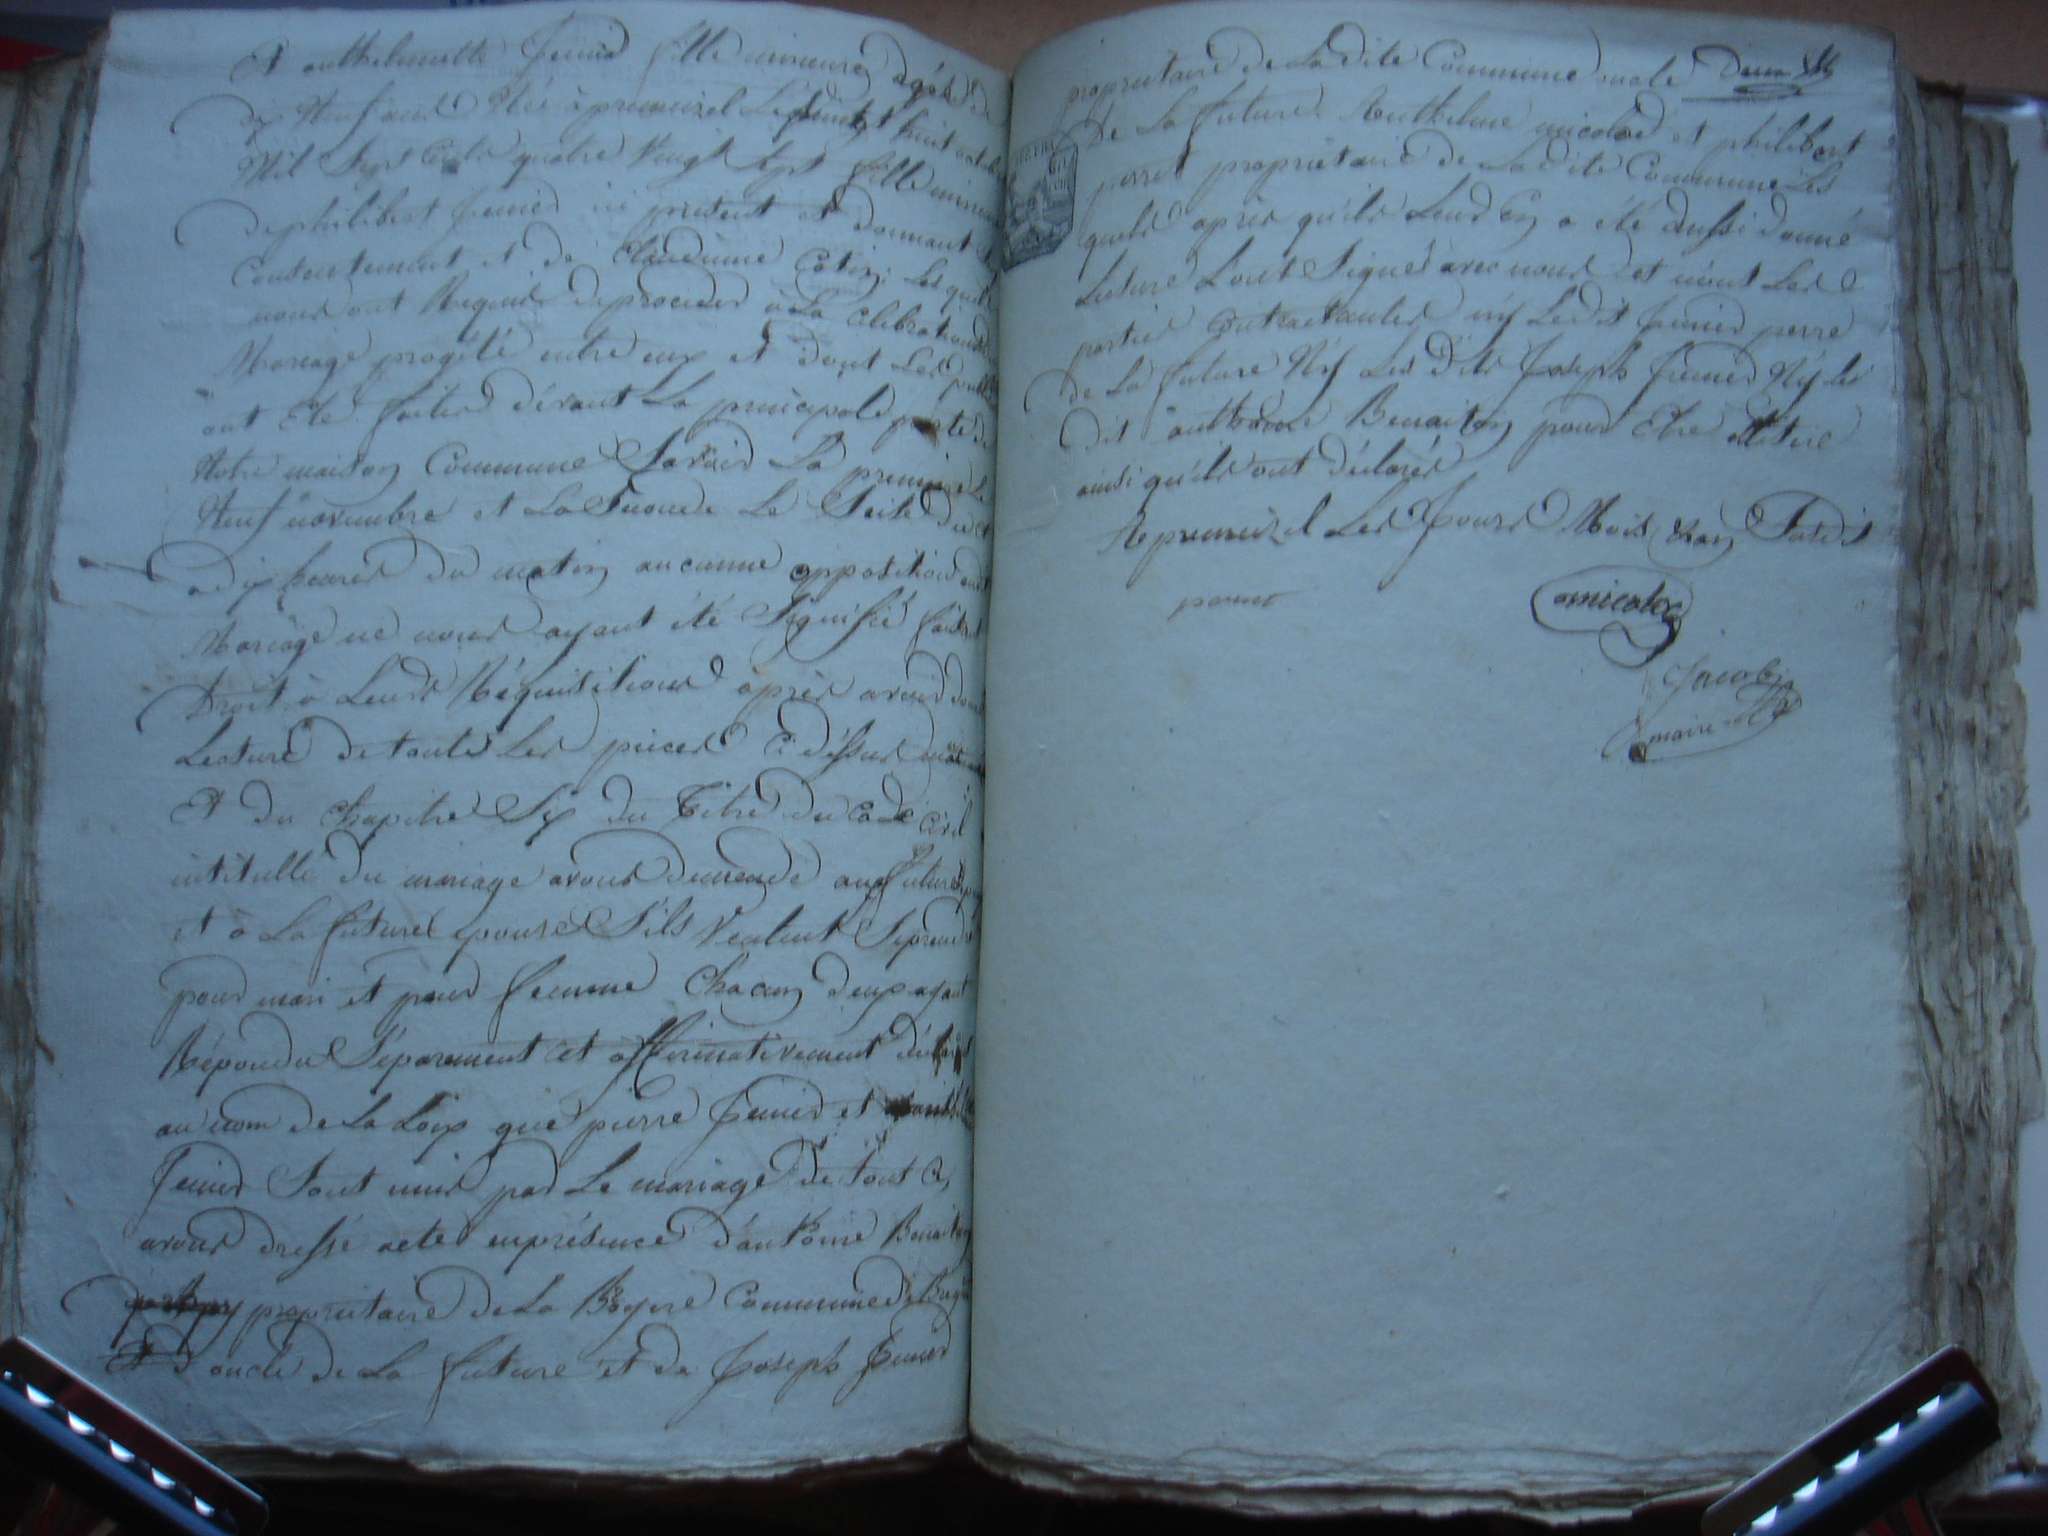 Et anthelmette Juined fille mineure agée de
dix Neuf ans Née à premeizel Le vingt huit octobre
Mil Sept Cents quatre Vingt Sept fille mineure
de philibert Juined ici présent et donnant
Consentement et de Claudine Cotin Les quels
nous ont Requis de proceder à La célébration du
Mariage progété entre eux et dont Les publications
ont Eté faites devant La principale porte de
Notre maison Commune Savoir La premiere Le
Neuf novembre et La Seconde Le Seize du
a dix heures du matin aucunne opposition audit
Mariage ne nous ayant été Signifié faisant
Droit à Leurs Réquisitions après avoir donné
Lecture de toutes Les pieces Ci dessus
Et du Chapitre Six du Titre du Code Civil
intitullé du mariage avons demendé au futur epoux
et à La future epouse S'ils Veulent Seprendre
pour mari et pour femme Chacun deux ayant
Répondu Séparement et affirmativement déclarons
au nom de La Loix que pierre Juined et
Juined Sont unis par Le mariage de tout Ce
avons dressé acte enprésence d'antoine Benaiton
propriétaire de La Boyere Commune de
Et oncle de La future et de Joseph Juined
propriétaire de La dite Commune oncle
De La future Anthelme micolod et philibert
perret propriétaire de La dite Commune Les
quels après qu'ils Leur En a été aussi donné
Lecture L'ont Signés avec nous et n'ont Les
parties Contractantes ny Ledit Juined perre
de La future Ny Les dits Joseph Juined Ny Le
dit anthoine Benaiton pour Etre illitéré
ainsi qu'ils ont déclarés
A premeizel Les Jours Mois et an Susdit
perret
amicolod
Jacob
maire